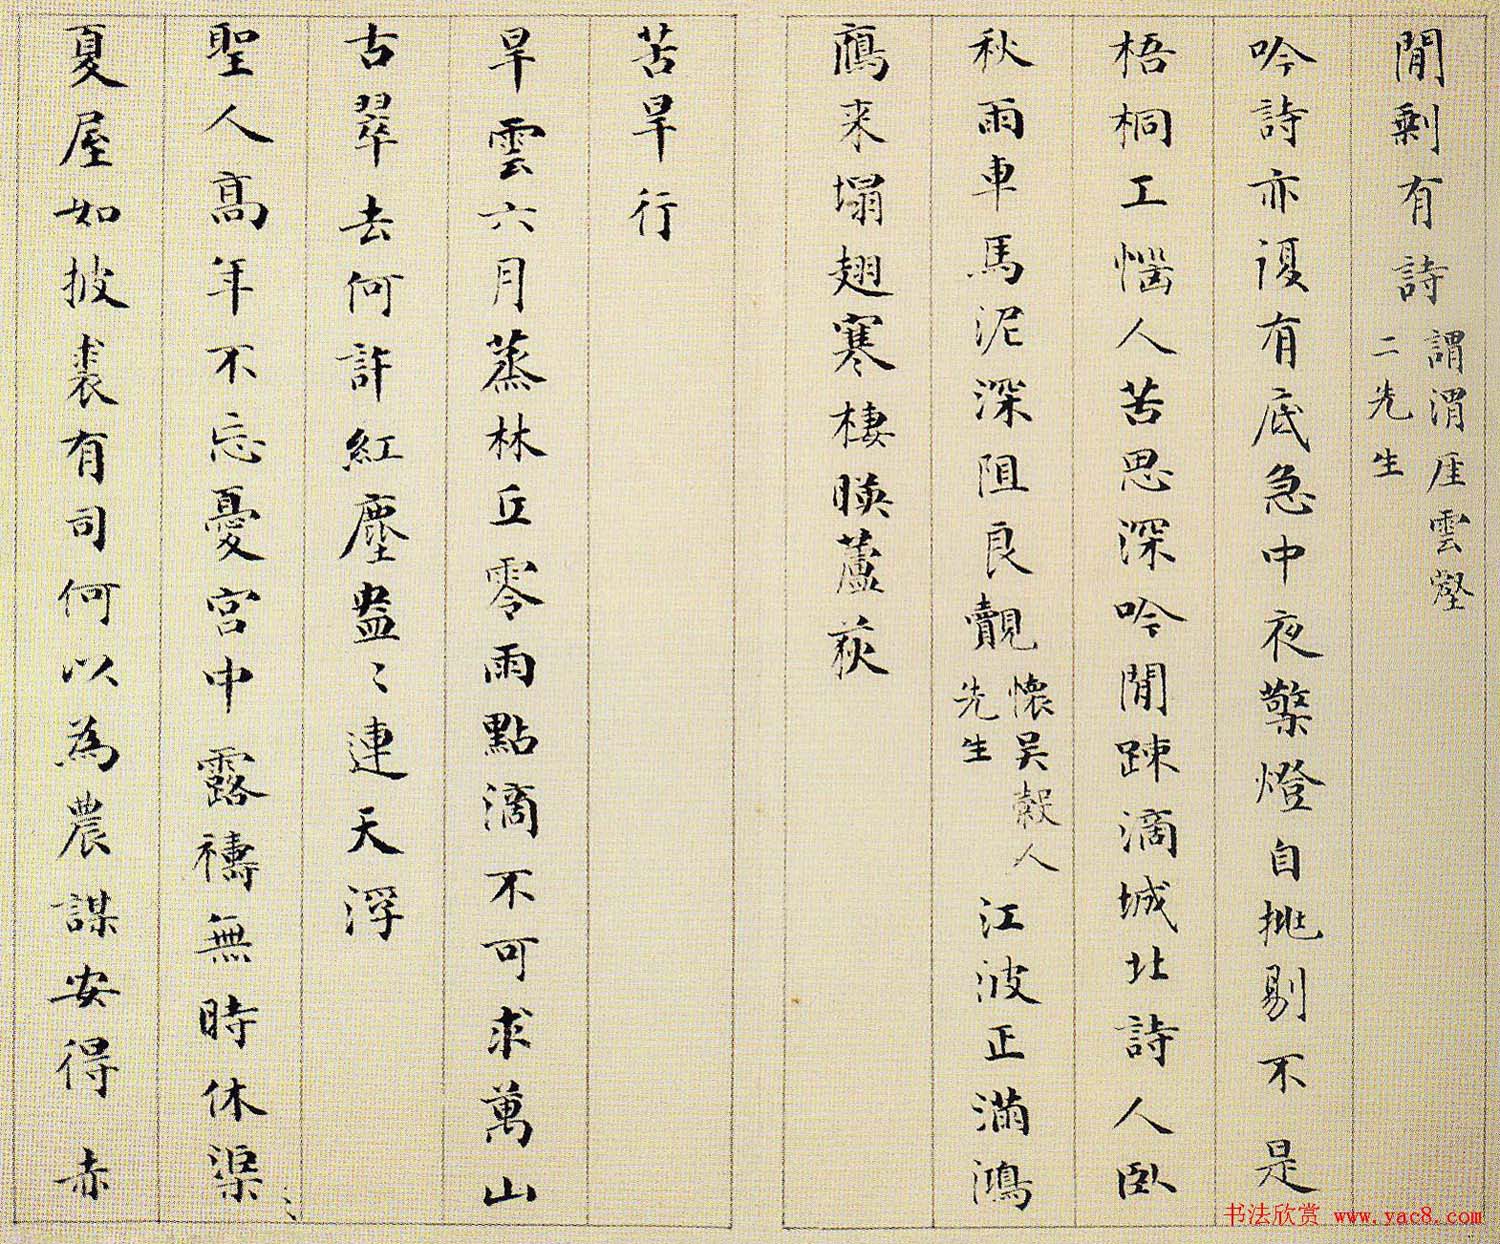 閒剩有詩謂渭厓雲壑二先生
吟詩亦復有底急中夜擎燈自挑剔不是
梧桐工惱人苦思深吟閒踈滴城北詩人臥
秋雨車馬泥深阻良覿懷吳穀人先生江波正滿鴻
鴈来塌翅寒棲暎蘆荻
苦旱行
旱雲六月蒸林丘零雨點滴不可求萬山
古翠去何許紅塵盎〻連天浮
聖人高年不忘憂宮中露禱無時休渠〻
夏屋如披裘有司何以為農謀安得赤
书法欣赏 www.yac8.com